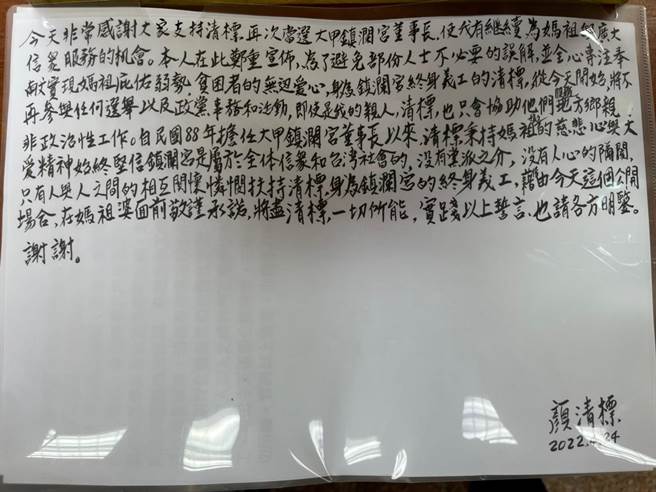 今天非常感謝大家支持清標,再次當選大甲鎮瀾宮董事長,使代有繼續為媽祖和廣大
信眾服務的机會。本人在此鄭重宣佈,為了避免部份人士不必要的誤解,並全心專注奉
献實現媽祖庇佑弱勢、貧困者的無迎爱心,身為鎮瀾宮終身義工的清標,從今天開始,將不
再參與任何選舉以及政黨事務和活動,即使是我的親人,清標,也只會協助他們地方鄉親
非政治性工作。自民國88年擔任大甲鎮瀾宮董事長以來,清標秉持媽祖的慈悲心與大
爱精神始終堅信鎮瀾宮是屬於全体信眾和台湾社會的,没有黨派之介,没有人心的隔閡,
只有人與人之間的相互関懷憐憫扶持清標,身為鎮瀾宮的終身義工,藉由今天這個公開
場合,在媽祖婆面前敬謹承諾,將盡清標,一切所能,實踐以上誓言,也請各方明鑒。
謝謝。
顏清標
2022.4.24